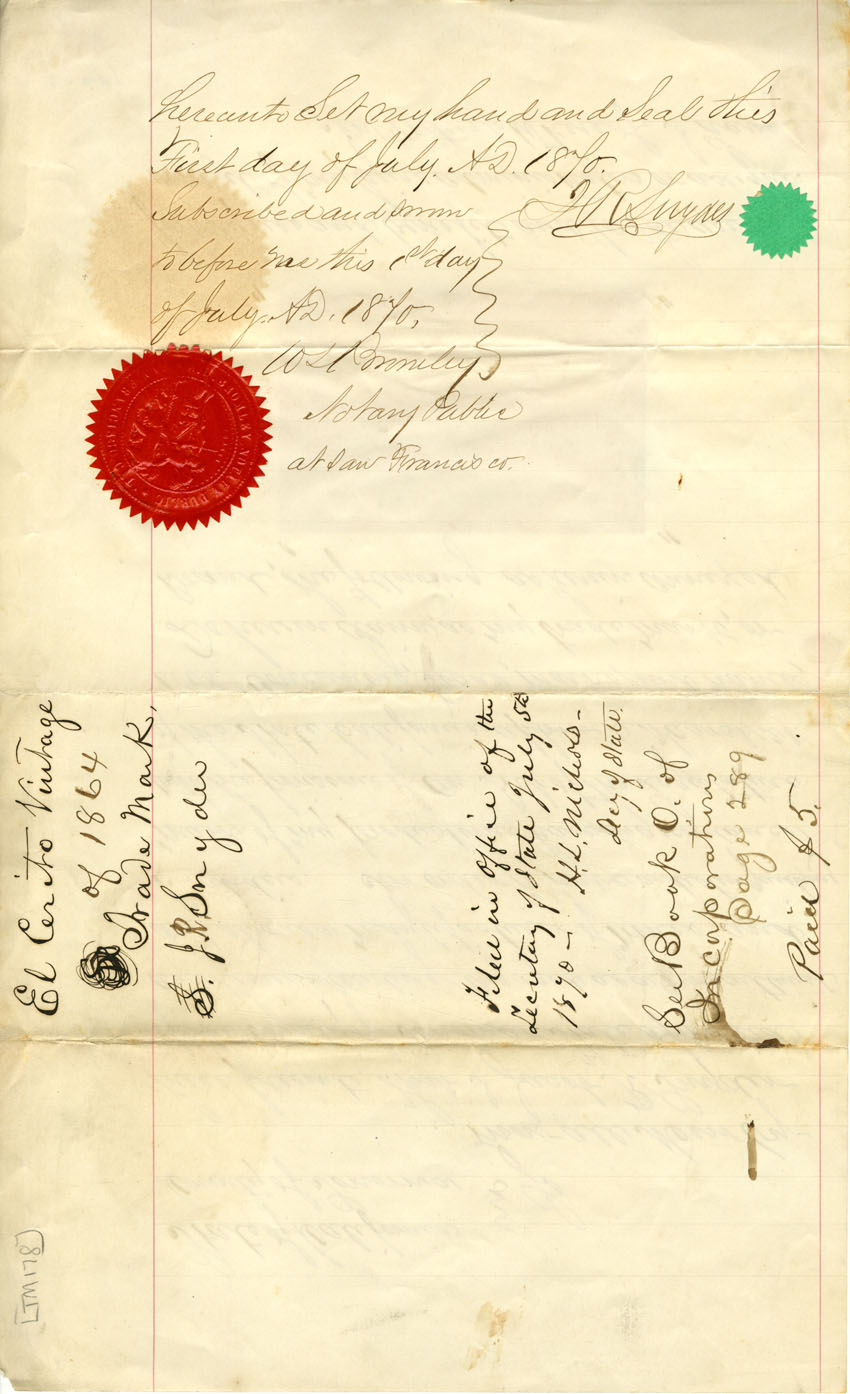 hereunto Set my hand and Seal this
First day of July. A.D. 1870.
J R Snyder
Subscribed and sworn
to before me this 1st day
of July. A.D. 1870,
W L
Notary Public
at San Francisco.
NOTARY PUBLIC
El Cerito Vintage
of 1864
Trade Mark,
S. J. R. Snyder
Filed in Office of the
Secretary of State July 5th
1870 – H. L. Nichols –
Secy of State.
See Book O. of
Incorporations
page 289
Paid $5.
[TM 178]